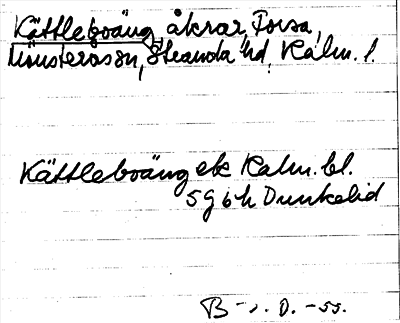 Kättleboäng, åkrar, Torsa,
Mönsterås sn, Stranda hd, Kalm. l.
Kättleboäng ek Kalm. bl.
5G6h Dunkelid